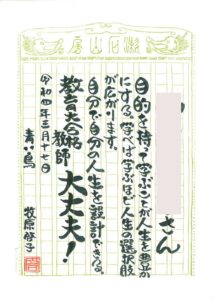 漱石山房
さん
目的を持って学ぶことが人生を豊か
にする。学べば学ぶほど人生の選択肢
が広がります。
自分で自分の人生を設計できる。
教師 大丈夫!
令和四年三月十七日
青い鳥
牧原